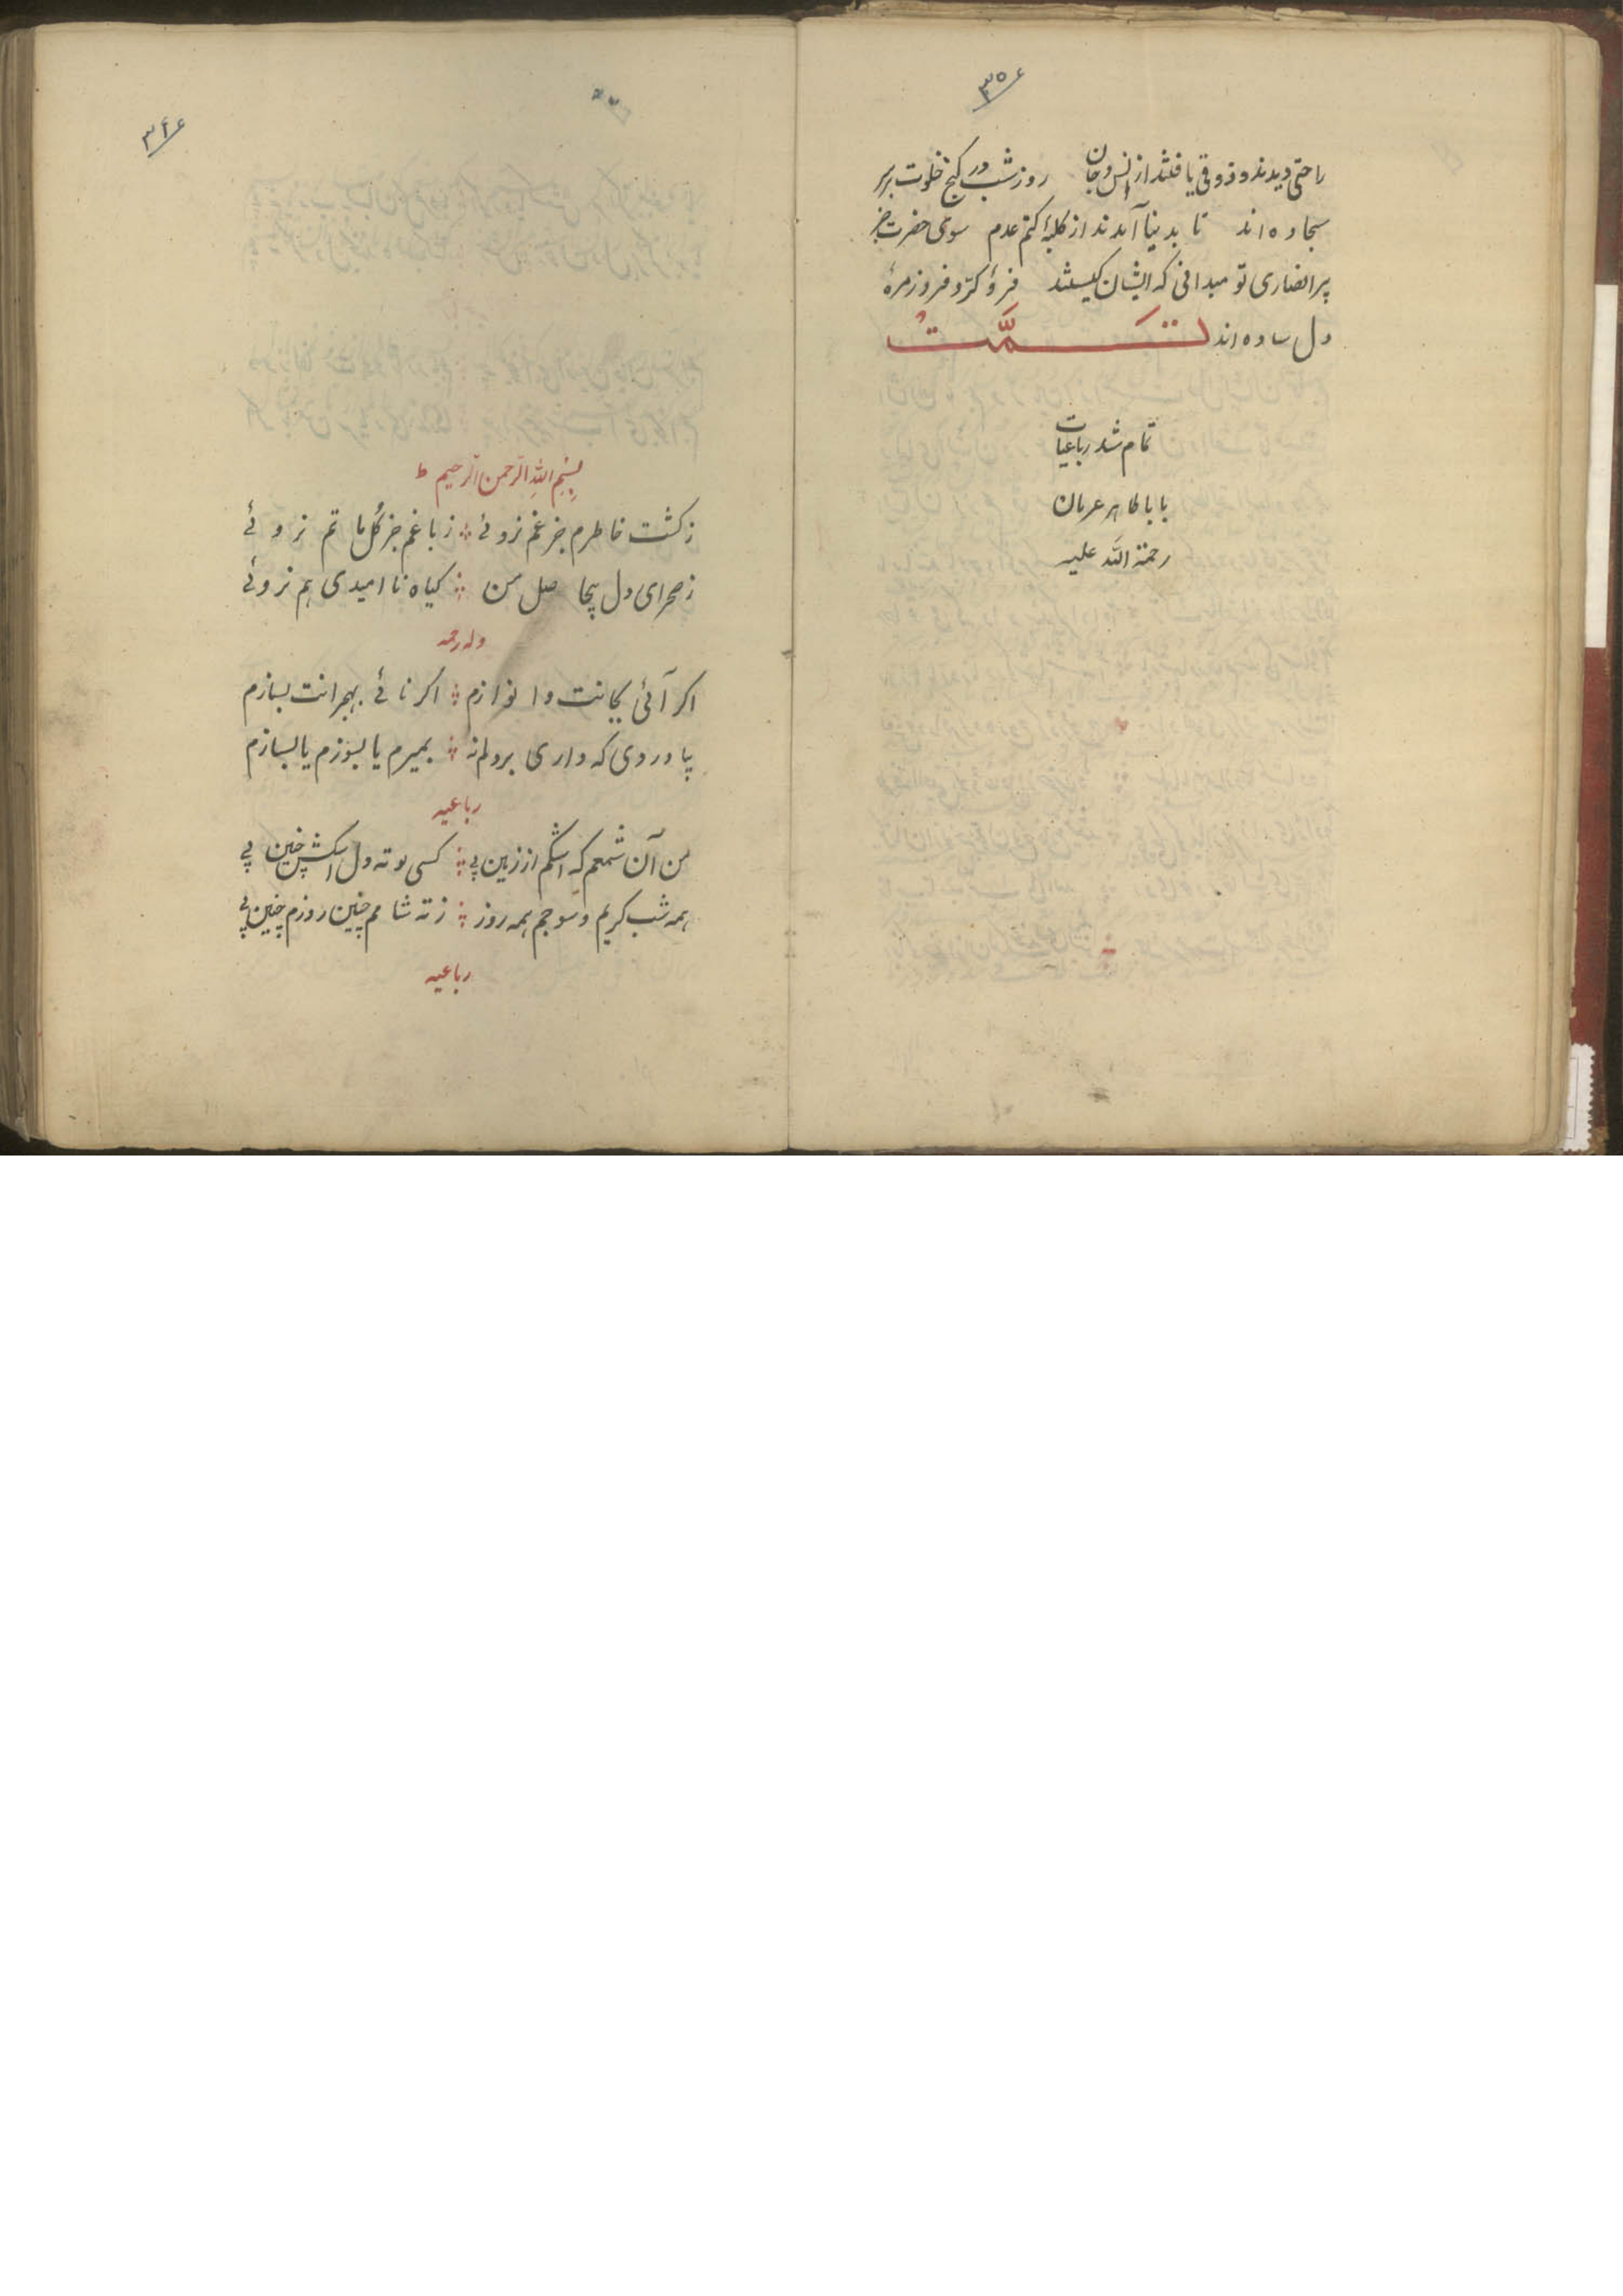 راحتی دیدند و ذوقی یافتند از انس و جان روز شب در کنج خلوت بر سر
سجاده اند تا بدنیا آمدند از کلبهٔ کتم عدم سوی حضرت
پیر انصاری تو میدانی که ایشان کیستند فرو کرّ و فر و زمرهٔ
دل ساده اند تمّت
تمام شد رباعیات
بابا طاهر عریان
رحمة الله علیه
۳۴۶
بسم الله الرحمن الرحیم
ز کشت خاطرم جز غم نروئی زباغم جز گل ماتم نروئی
ز صحرای دل بیحاصل من کیاه ناامیدی هم نروئی
وله رحمه
اکر آئی بجانت وا نوازم اکر نائی بهجرانت بسازم
بیا دردی که داری بردلم نه بمیرم یا بسوزم یا بسازم
رباعیه
من آن شمعم که اشکم آذرین بی کسی سوته دل اشکش چنین بی
همه شب کریم و سوجم همه روز زته شامم چنین روزم چنین بی
رباعیه